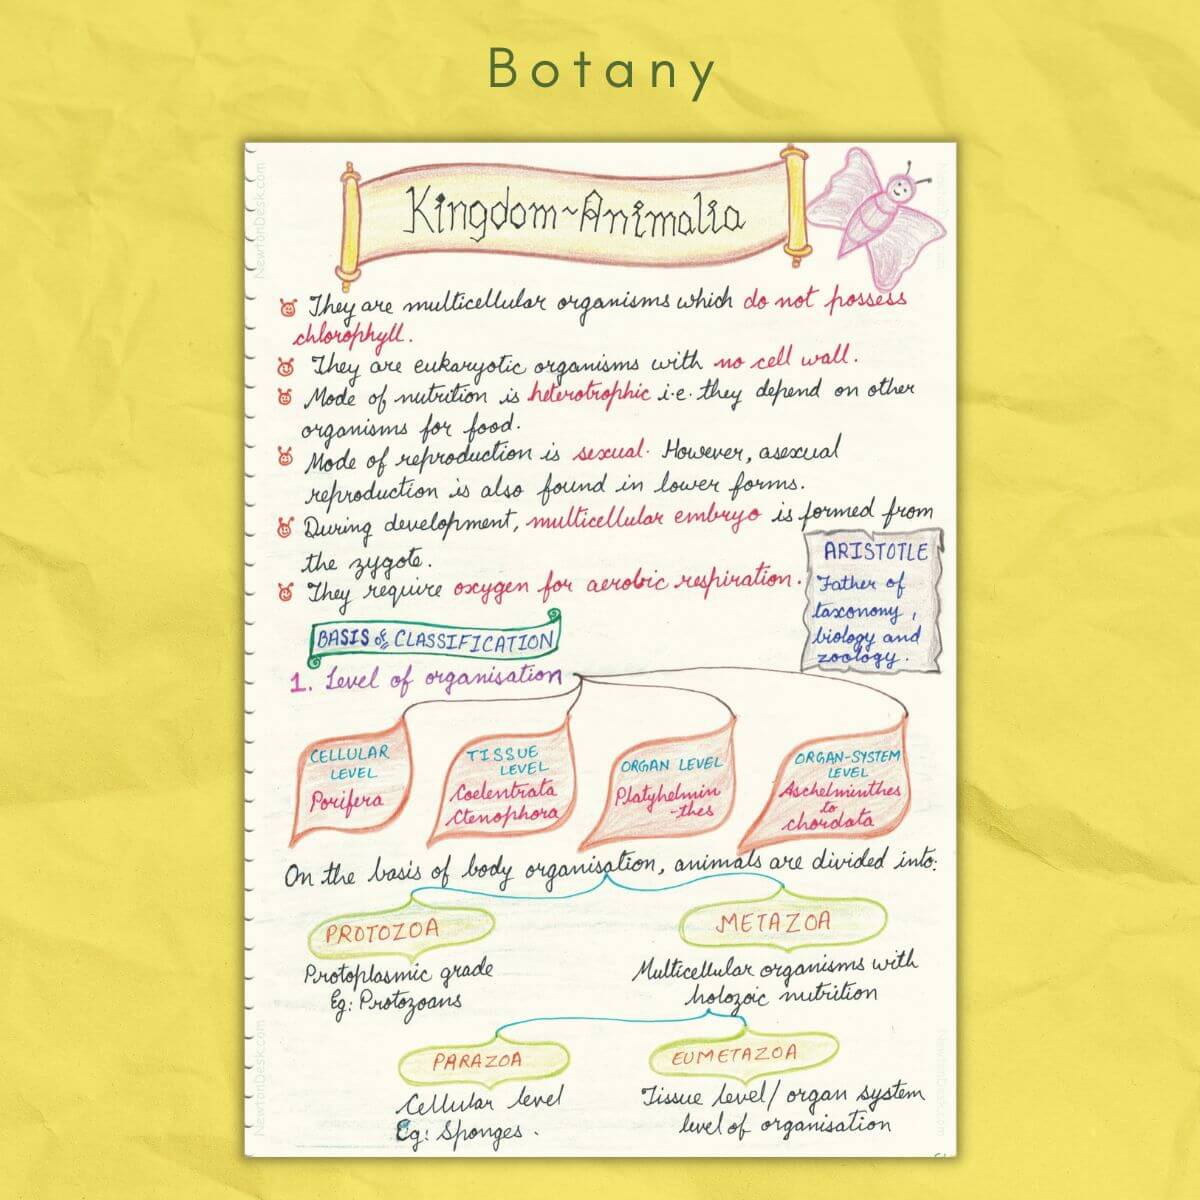 Botany
NewtonDesk.com
Kingdom~Animalia
They are multicellular organisms which do not possess
chlorophyll.
They are eukaryotic organisms with no cell wall.
Mode of nutrition is heterotrophic i.e. they depend on other
organisms for food.
Mode of reproduction is sexual. However, asexual
reproduction is also found in lower forms.
During development, multicellular embryo is formed from
the zygote.
They require oxygen for aerobic respiration.
ARISTOTLE
Father of
taxonomy,
biology and
zoology.
BASIS of CLASSIFICATION
1. Level of organisation
CELLULAR
LEVEL
Porifera
TISSUE
LEVEL
Coelentrata
Ctenophora
ORGAN LEVEL
Platyhelmin
-thes
ORGAN-SYSTEM
LEVEL
Aschelminthes
to
chordata
On the basis of body organisation, animals are divided into:
PROTOZOA
Protoplasmic grade
Eg: Protozoans
METAZOA
Multicellular organisms with
holozoic nutrition
PARAZOA
Cellular level
Eg: Sponges.
EUMETAZOA
Tissue level/organ system
level of organisation
NewtonDesk.com
NewtonDesk.com